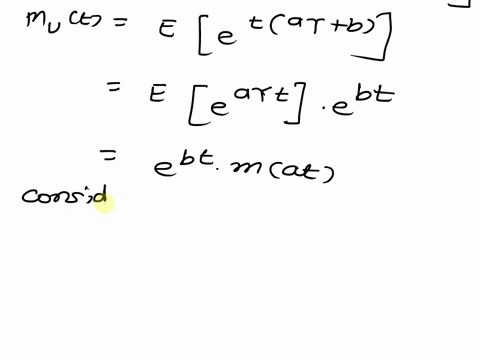 m_U(t) = E [e^{t(aY+b)}]
= E [e^{aYt}] . e^{bt}
= e^{bt} . m(at)
consid